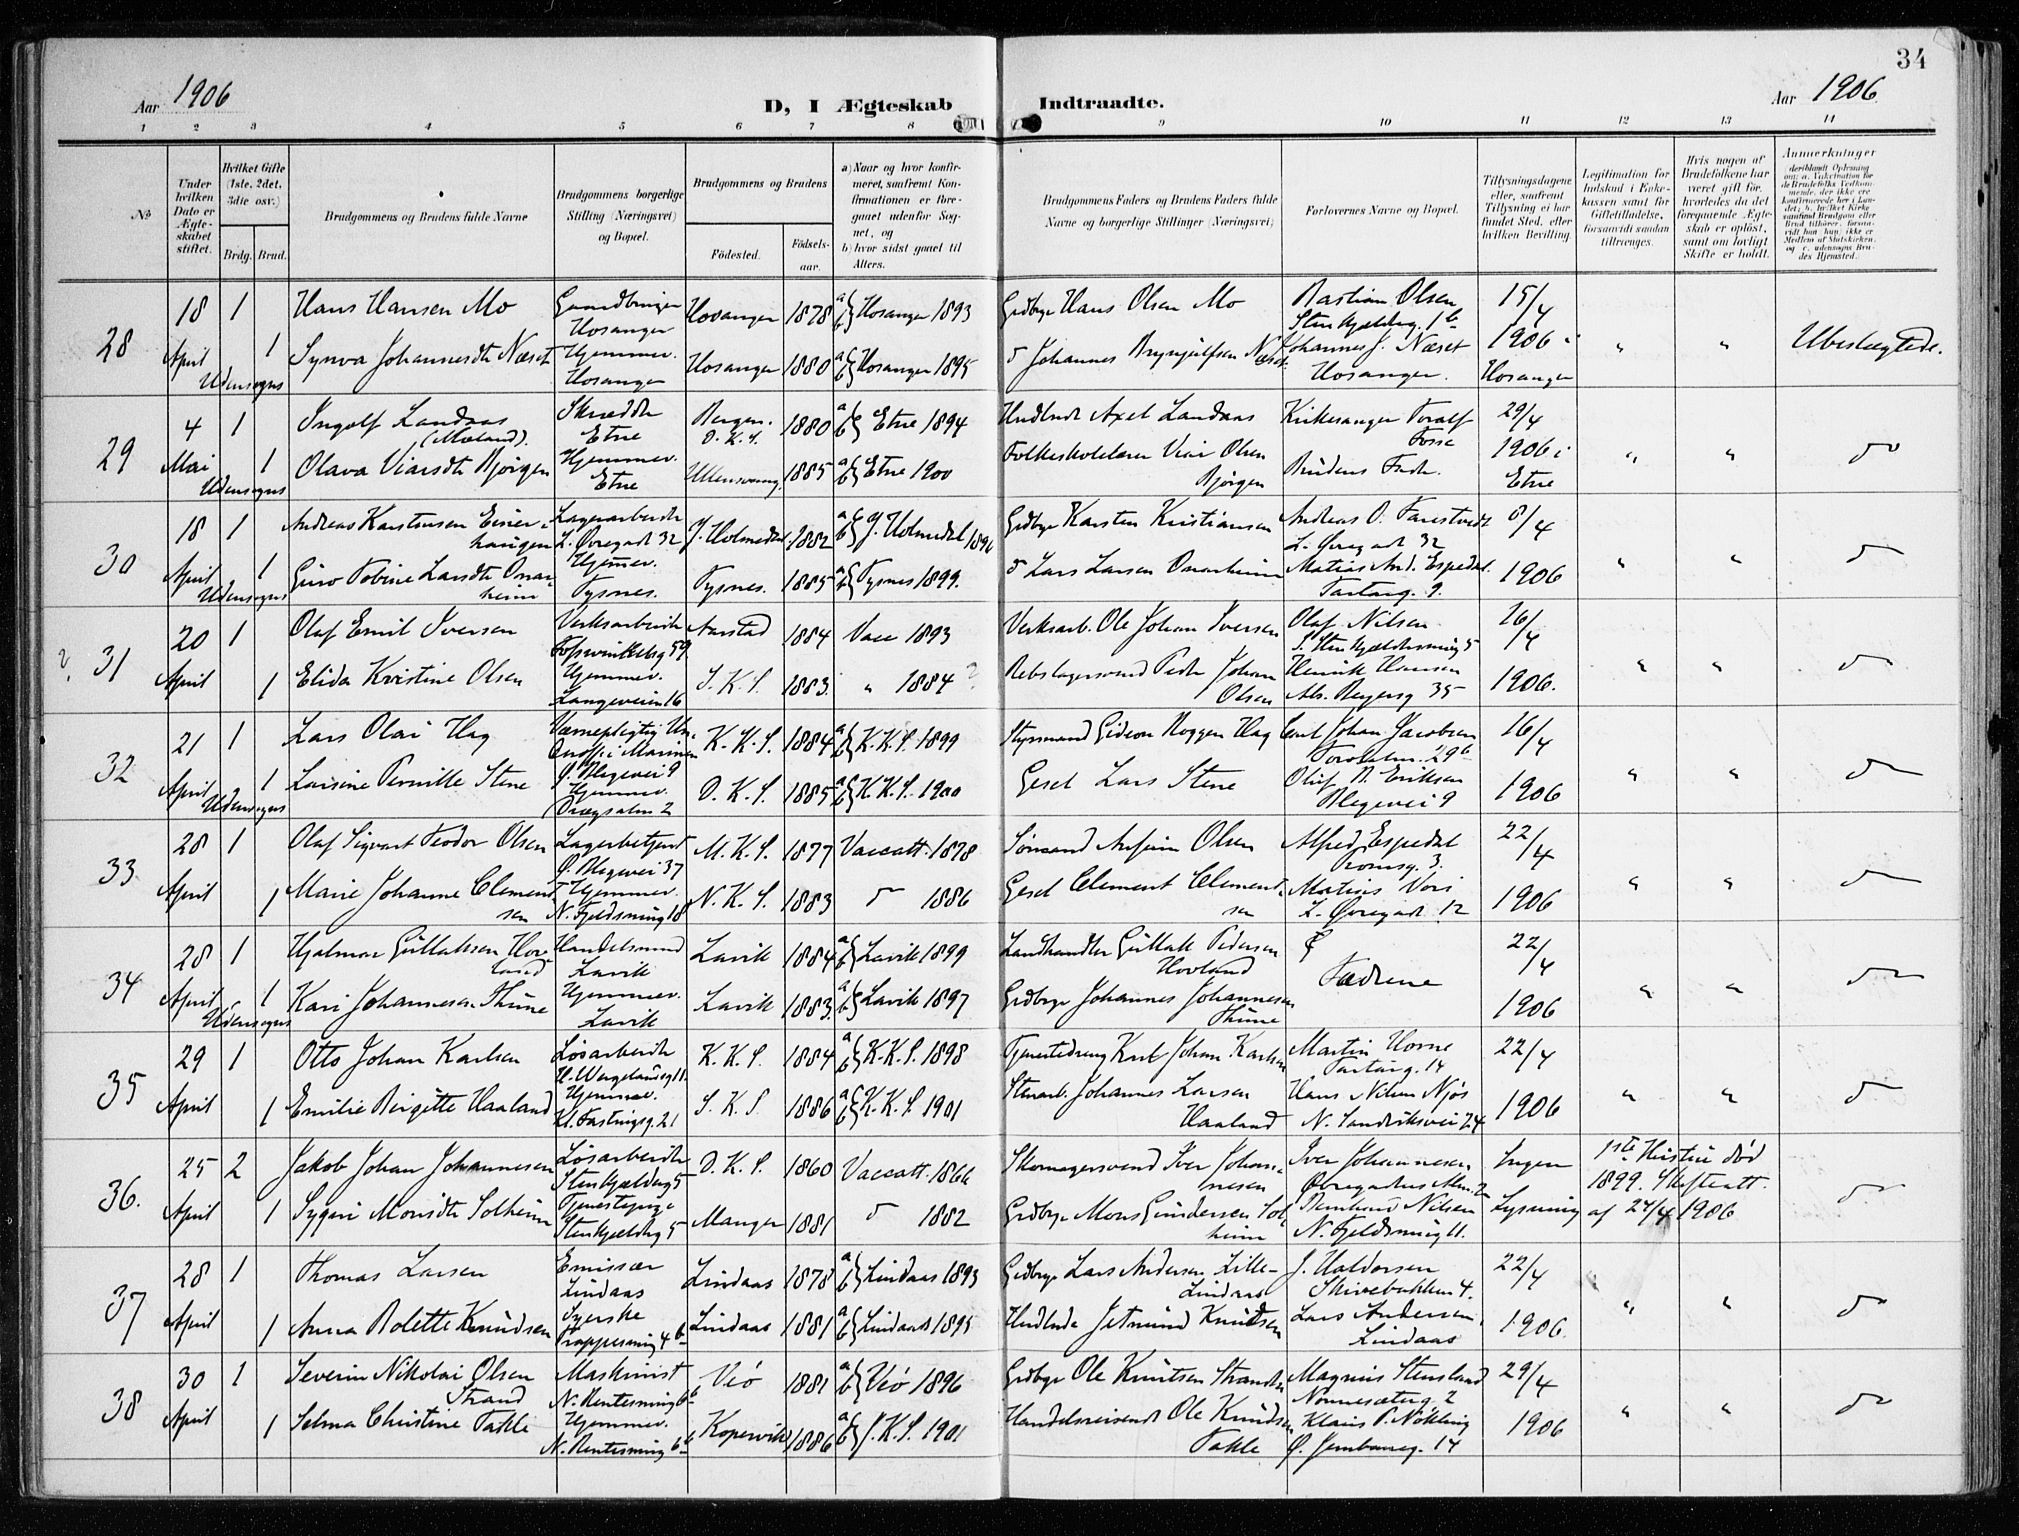 34
Aar 1906
D, I Ægteskab Indtraadte.
Aar 1906
1 2 3 4 5 6 7 8 9 10 11 12 13 14
№
Under hvilken Dato er Ægteskabet stiftet.
Hvilket Gifte (1ste, 2det, 3die osv.)
Brdg. Brud.
Brudgommens og Brudens fulde Navne
Brudgommens borgerlige Stilling (Næringsvei) og Bopæl.
Brudgommens og Brudens
Födested.
Födselsaar.
a) Naar og hvor konfirmeret, saafremt Konfirmationen er foregaaet udenfor Sognet, og
b) hvor sidst gaaet til Alters.
Brudgommens Faders og Brudens Faders fulde Navne og borgerlige Stillinger (Næringsvei)
Forlovernes Navne og Bopæl.
Tillysningsdagene eller, saafremt Tillysning ei har fundet Sted, efter hvilken Bevilling.
Legitimation for Indskud i Enkekassen samt for Giftetilladelse, forsaavidt saadan tiltrænges.
Hvis nogen af Brudefolkene har været gift før, hvorledes da det foregaaende Ægteskab er opløst, samt om lovligt Skifte er holdt.
Anmerkninger
28 18 1 Hans Hansen Mo Gaardbruger Hosanger Hosanger 1878 a b Hosanger 1893 Grdbr Hans Olsen Mo Bastian Olsen Stenkjelderg. 1 b 15/4
April 1 Synva Johannesdtr Næset Hjemmev. Hosanger Hosanger 1880 a b Hosanger 1895 Johannes Brynjulfsen Næset Johannes J. Næset Hosanger. 1906 i Hosanger " " Ubeslegtede.
Udensogns
29 4 1 Ingolf Landaas (Mæland). Skrædder Etne Bergen. D. K. S. 1880 a b Etne 1894 Hndlnde Axel Landaas Kirkesanger Toralf Fosse 29/4
Mai 1 Olava Viarsdtr Bjørgen Hjemmev. Etne Ullensvang. 1885 a b Etne 1900 Folkeskolelærer Viar Olsen Bjørgen Brudens Fader. 1906 i Etne " " do
Udensogns
30 18 1 Andreas Karstensen Einerhaugen Lagerarbeider L. Øvregade 32 Y. Holmedal 1882 a b Y. Holmedal 1896 Grdbr Karsten Kristiansen Andreas O. Farestvedt L. Øvregade 32 8/4
April 1 Guro Tobine Larsdtr Onarheim Hjemmev. Tysnes. Tysnes. 1885 a b Tysnes 1899. do Lars Larsen Onarheim Matias And. Espedal. Tartarg. 9. 1906 " " do
Udensogns
31 20 1 Olaf Emil Iversen Verksarbeider Fosswinkelsg 59 Aarstad 1884 Vacc 1893 Verksarb. Ole Johan Iversen Olaf Nilsen S. Stenkjeldersmug 5 16/4
April 1 Elida Kristine Olsen Hjemmev. Langeveien 16 S. K. S. 1883 " 1884 ? Rebslagersvend Peder Johan Olsen Henrik Hansen Abs. Beyersg 35 1906. " " do
32 21 1 Lars Olai Hag Værnepligtig Underoff. i Marinen Ø. Blegevei 9 K. K. S. 1884 a b K. K. S. 1899 Styrmand Gideon Roggen Hag Emil Johan Jacobsen 29 b 16/4
April 1 Larsine Pernille Stene Hjemmev. Dragsalm. 2 D. K. S. 1885 a b K. K. S. 1900 Gesel Lars Stene Oluf B. Eriksen Blegevei 9 1906 " " do
Udensogns
33 28 1 Olaf Sigvart Teodor Olsen Lagerbetjent Ø. Blegevei 37 M. K. S. 1877 Vaccatt. 1878 Sømand Anfinn Olsen Alfred Espedal Tromsøg. 3. 22/4
April 1 Marie Johanne Clementsen Hjemmev. N. Fjeldsmug 18 N. K. S. 1883 do 1886 Gesel Clement Clementsen Matias Vori L. Øvregade 12 1906 " " do
34 28 1 Hjalmar Gullaksen Hovland Handelsmand Lavik Lavik 1884 a b Lavik 1899 Landhandler Gullak Pedersen Hovland Fædrene 22/4
April 1 Kari Johannesen Thune Hjemmev. Lavik Lavik 1883 a b Lavik 1897 Grdbr Johannes Johannesen Thune 1906 " " do
Udensogns
35 29 1 Otto Johan Karlsen Løsarbeider H. Wergelandsg 11. K. K. S. 1884 a b K. K. S. 1898 Tjenestedreng Karl Johan Karlsen Martin Horne Tartarg. 14 22/4
April 1 Emilie Birgitte Haaland Hjemmev. Kl. Fastingsg. 21 S. K. S. 1886 a b K. K. S. 1901 Stenarb. Johannes Larsen Haaland Hans Nilsen Njøs N. Sandviksvei 24 1906 " " do
36. 25 2 Jakob Johan Johannesen Løsarbeider Stenkjelderg 5 D. K. S. 1860 Vaccatt. 1866 Skomagersvend Iver Johannesen Iver Johannesen Øvregadens Alm. Ingen 1ste Hustru død 1899. Skifteatt. af 24/4 1906
April 1 Sygni Monsdtr Solheim Tjenestepige Stenkjelderg 5 Manger 1881 do 1882 Grdbr Mons Gundersen Solheim Bernhard Nilsen N. Fjeldsmug 11. Lysning do
37 28 1 Thomas Larsen Emissær Lindaas Lindaas 1878 a b Lindaas 1893 Grdbr Lars Andersen Lille-Lindaas J. Haldorsen Skivebakken 4. 22/4
April 1 Anna Bolette Knudsen Syerske Trappesmug 4 b Lindaas 1881 a b Lindaas 1895 Hndlnde Jetmund Knudsen Lars Andersen. Lindaas 1906. " " do
38 30 1 Severin Nikolai Olsen Strand Maskinist N. Rentesmug 6 b Veø 1881 a b Veø 1896 Grdbr Ole Knutsen Stranden Magnus Stensland Nonnesæterg. 2 29/4
April 1 Selma Christine Takle Hjemmev. N. Rentesmug 6 b Kopervik 1886 a b J. K. S. 1901 Handelsreisende Ole Knudsen Takle Klaus P. Nøkling Ø. Jernbaneg. 14 1906 " " do